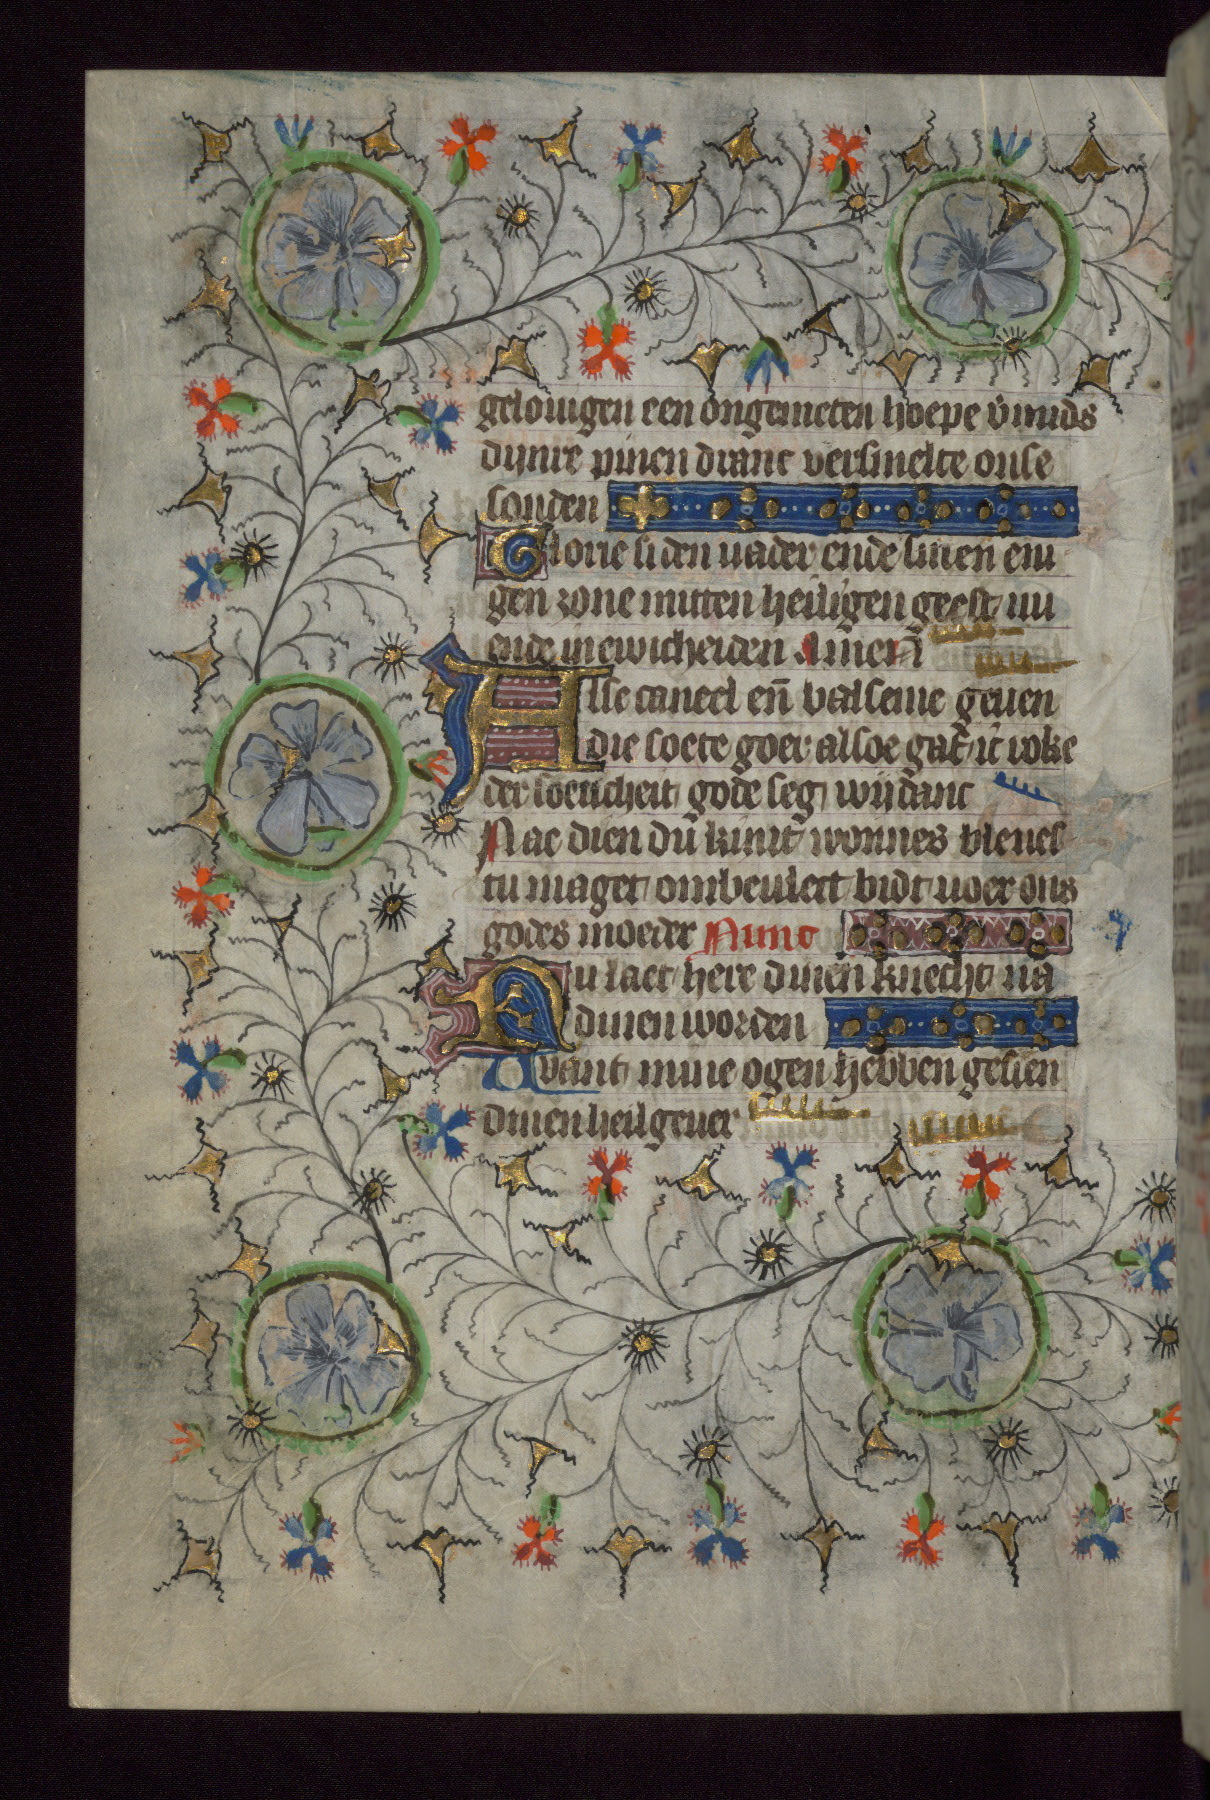 gelouigen een ongemeten hoepe v̄mids
dijnre pinen dranc versmelte onse
sonden
Glorie si den uader ende sinen eni
gen zone mitten heiligen geest nu
ende in ewicheiden Amen
Alse caneel en̄ balseme geuen
die soete goer alsoe gaf
der soeticheit gode seg wij danc
Nae dien du kint wonnes bleues
tu maget ombeulect bidt uoer ons
godes moeder Nunc
Nu laet here dinen knecht na
dinen worden
Want mine ogen hebben gesien
dinen heilgeuer